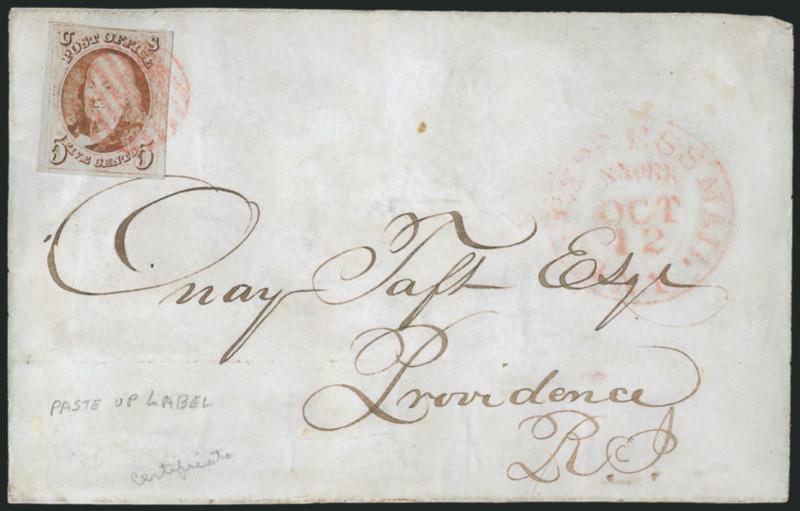 U S
POST OFFICE
5 FIVE CENTS 5
EXPRESS MAIL
N.YORK
OCT
12
Onay Taft Esqr
Providence
R.I
PASTE UP LABEL
certificate